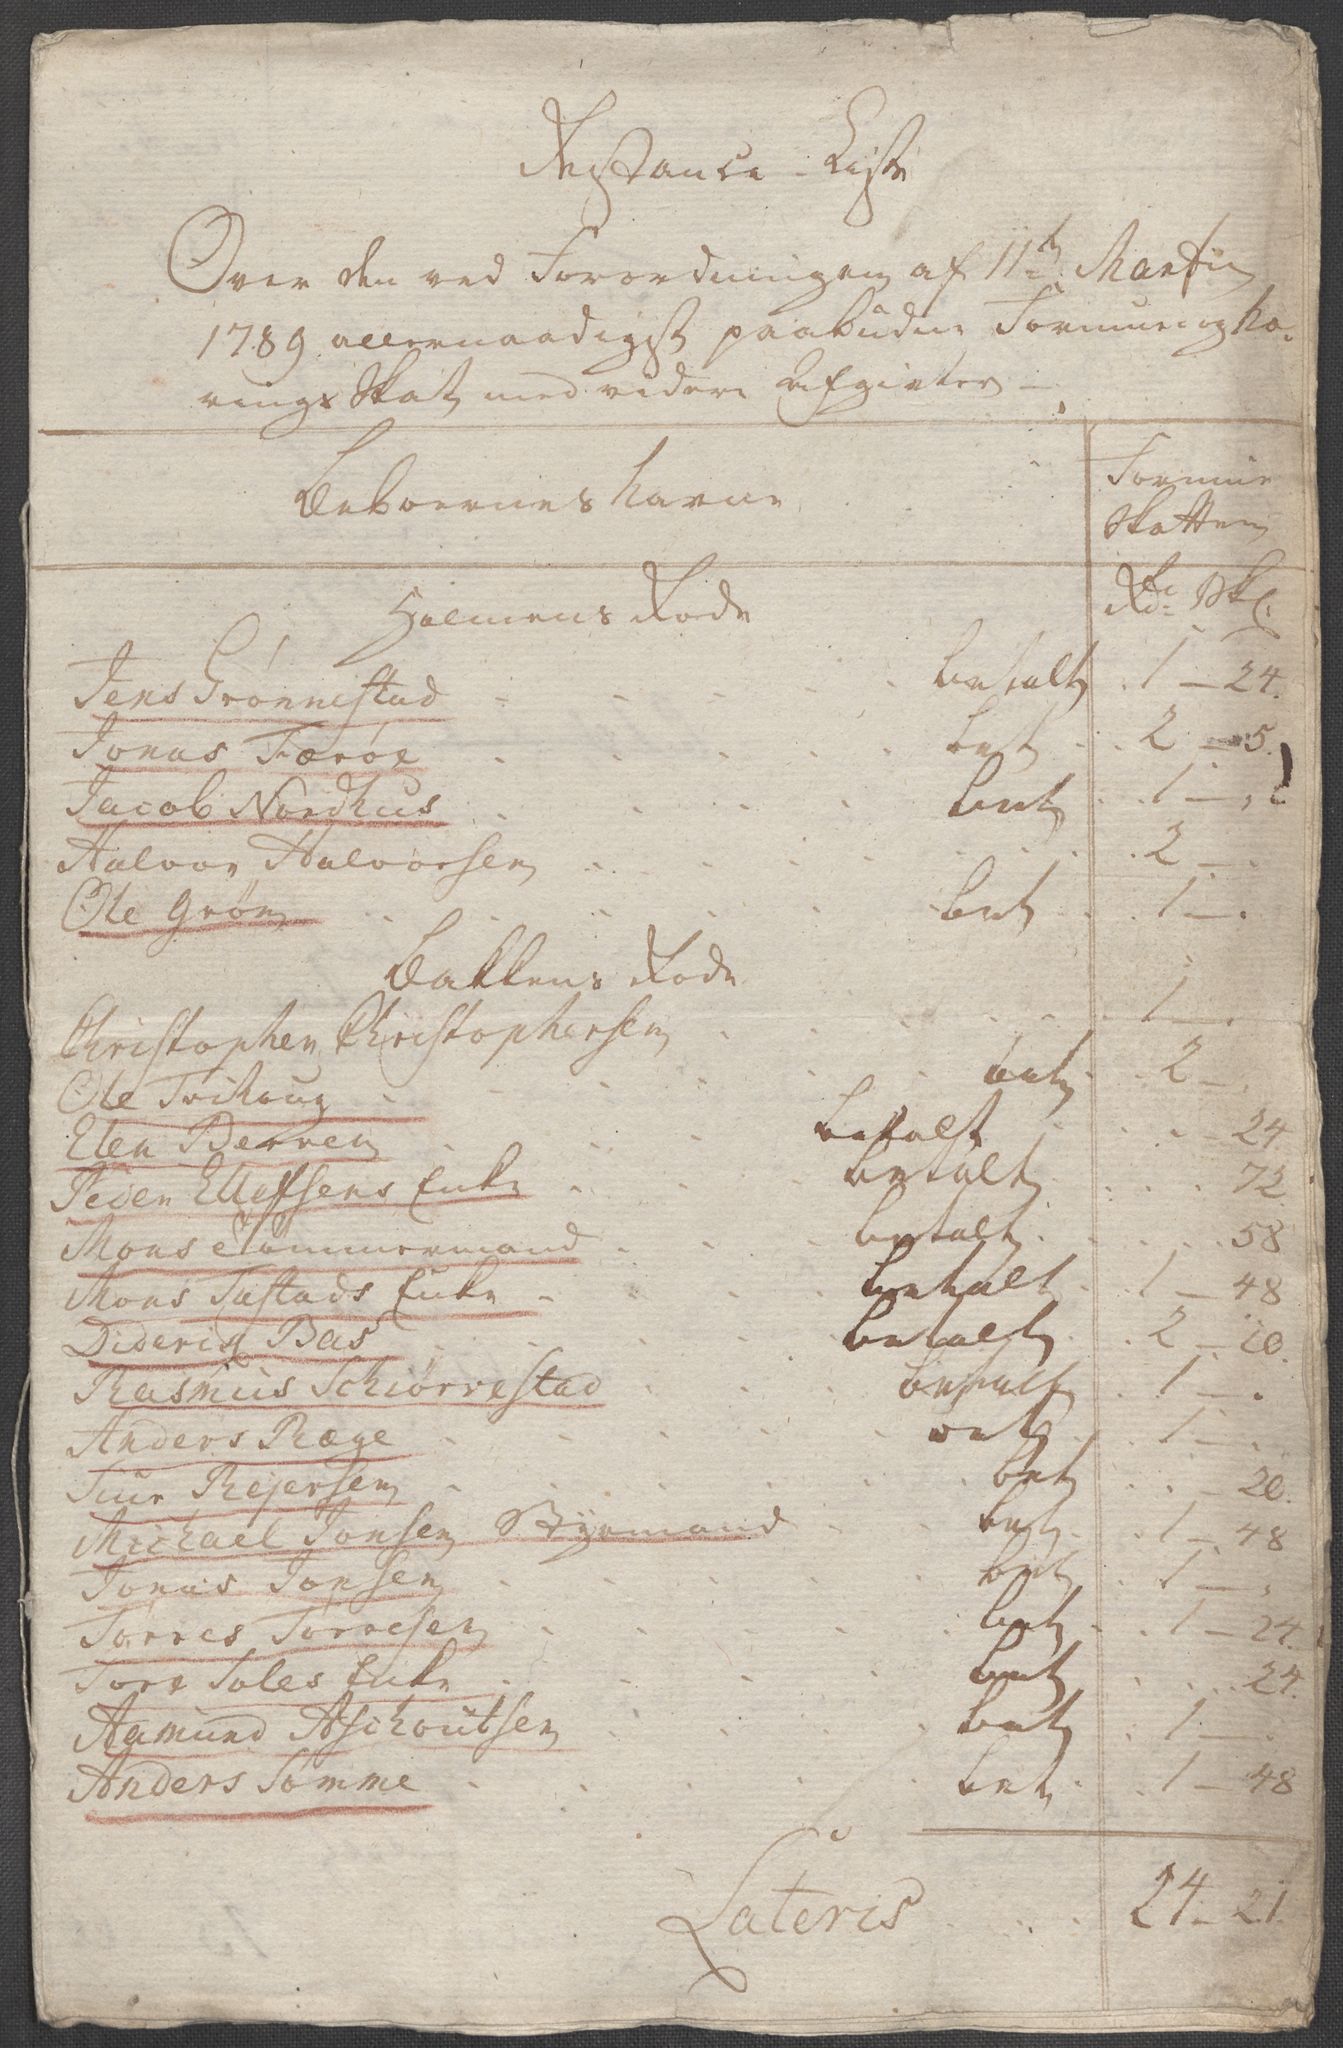 Restance Liste
Over den ved Forordningen af 11te Martii
1789 allernaadigst paabudne Formue og Næ-
rings Skat med videre Afgivter
Beboernes Navne
Formue
Skatten
Rdr Skl.
Holmens Rode
Jens Grønnestad betalt 1 - 24.
Jonas Færöe bet 2 - 5.
Jacob Nordhus bet 1 -
Halvor Halvorsen 2 - .
Ole Grön bet 1 - .
Bakkens Rode
Christopher Christophersen 1 - .
Ole Trihoug bet 2 - .
Elen Berven betalt - 24
Peder Ellefsens Enke betalt 72.
Mons Tømmermand betalt 58
Mons Tastads Enke betalt 1 - 48
Diderik Bas betalt 2 - 20.
Rasmus Schiørrestad betalt 1 - .
Anders Ræge bet 1 - .
Tuur Rejersen bet - 20.
Michael Jonsen Styrmand bet 1 - 48
Jonas Jonsen bet 1 - .
Torres Torresen bet 1 - 24.
Tore Soles Enke bet 24.
Aamund Aschoutsen bet 1 - .
Anders Sømme bet 1 - 48
Lateris 24 - 21.